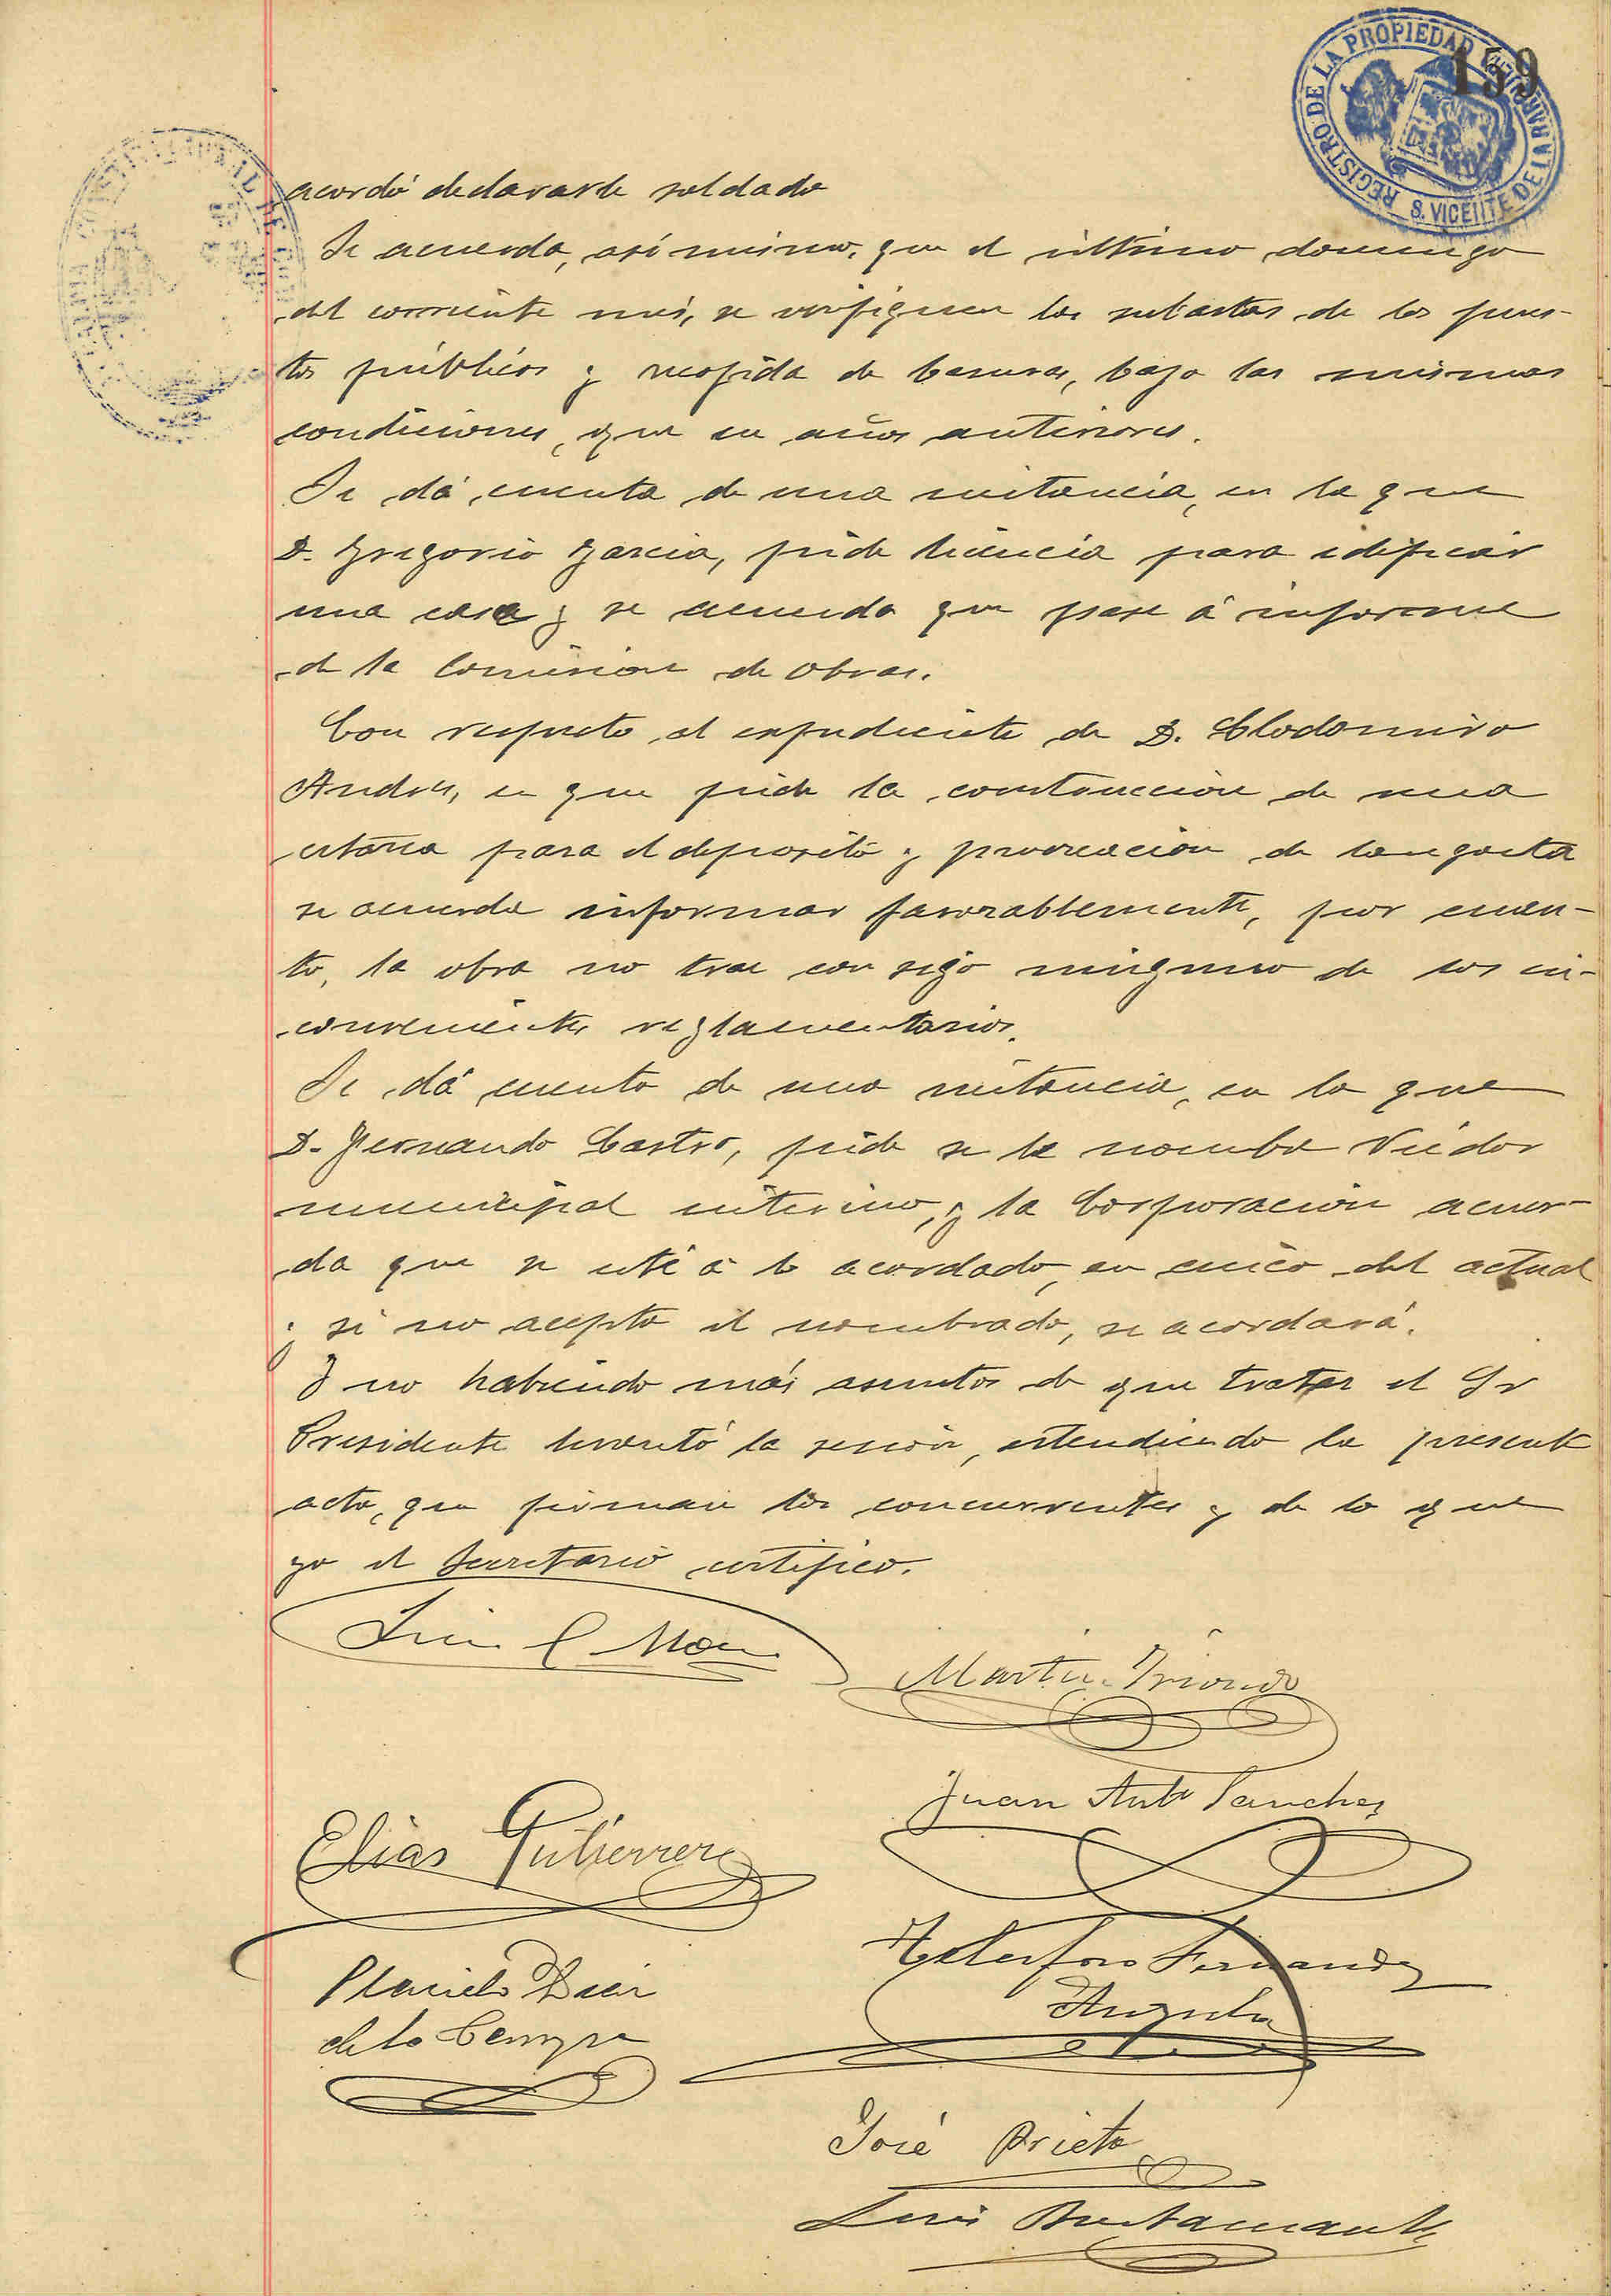 REGISTRO DE LA PROPIEDAD
S. VICENTE DE LA BARQUERA
159
acordó declararle soldado
Se acuerda, asi mismo, que el ultimo domingo
del corriente més, se verifiquen las subastas de los pues-
tos públicos y recogida de basuras, bajo las mismas
condiciones, que en años anteriores.
Se dá cuenta de una instancia, en la que
D. Gregorio Garcia, pide licencia para edificar
una casa y se acuerda que pase á informe
de la Comision de obras.
Con respecto al expediente de D. Clodomiro
Andrés, en que pide la construccion de una
para el deposito y procreacion de langosta
se acuerda informar favorablemente, por cuan-
to, la obra no trae con sigo ninguno de los in-
convenientes reglamentarios.
Se dá cuenta de una instancia, en la que
D. Fernando Castro, pide se le nombre Veedor
municipal interino, y la Corporacion acuer-
da que se esté á lo acordado, en cinco del actual
y si no acepta el nombrado, se acordará.
Y no habiendo más asuntos de que tratar el Sr
Presidente levantó la sesion, estendiendo la presente
acta, que firman los concurrentes y de lo que
yo el Secretario certifico.
Martin Triondo
Juan Antº Sanchez
Elias Gutierrez
Telesforo Fernandez
Placido Diaz
de la Campa
José Prieto
Luis Bustamante